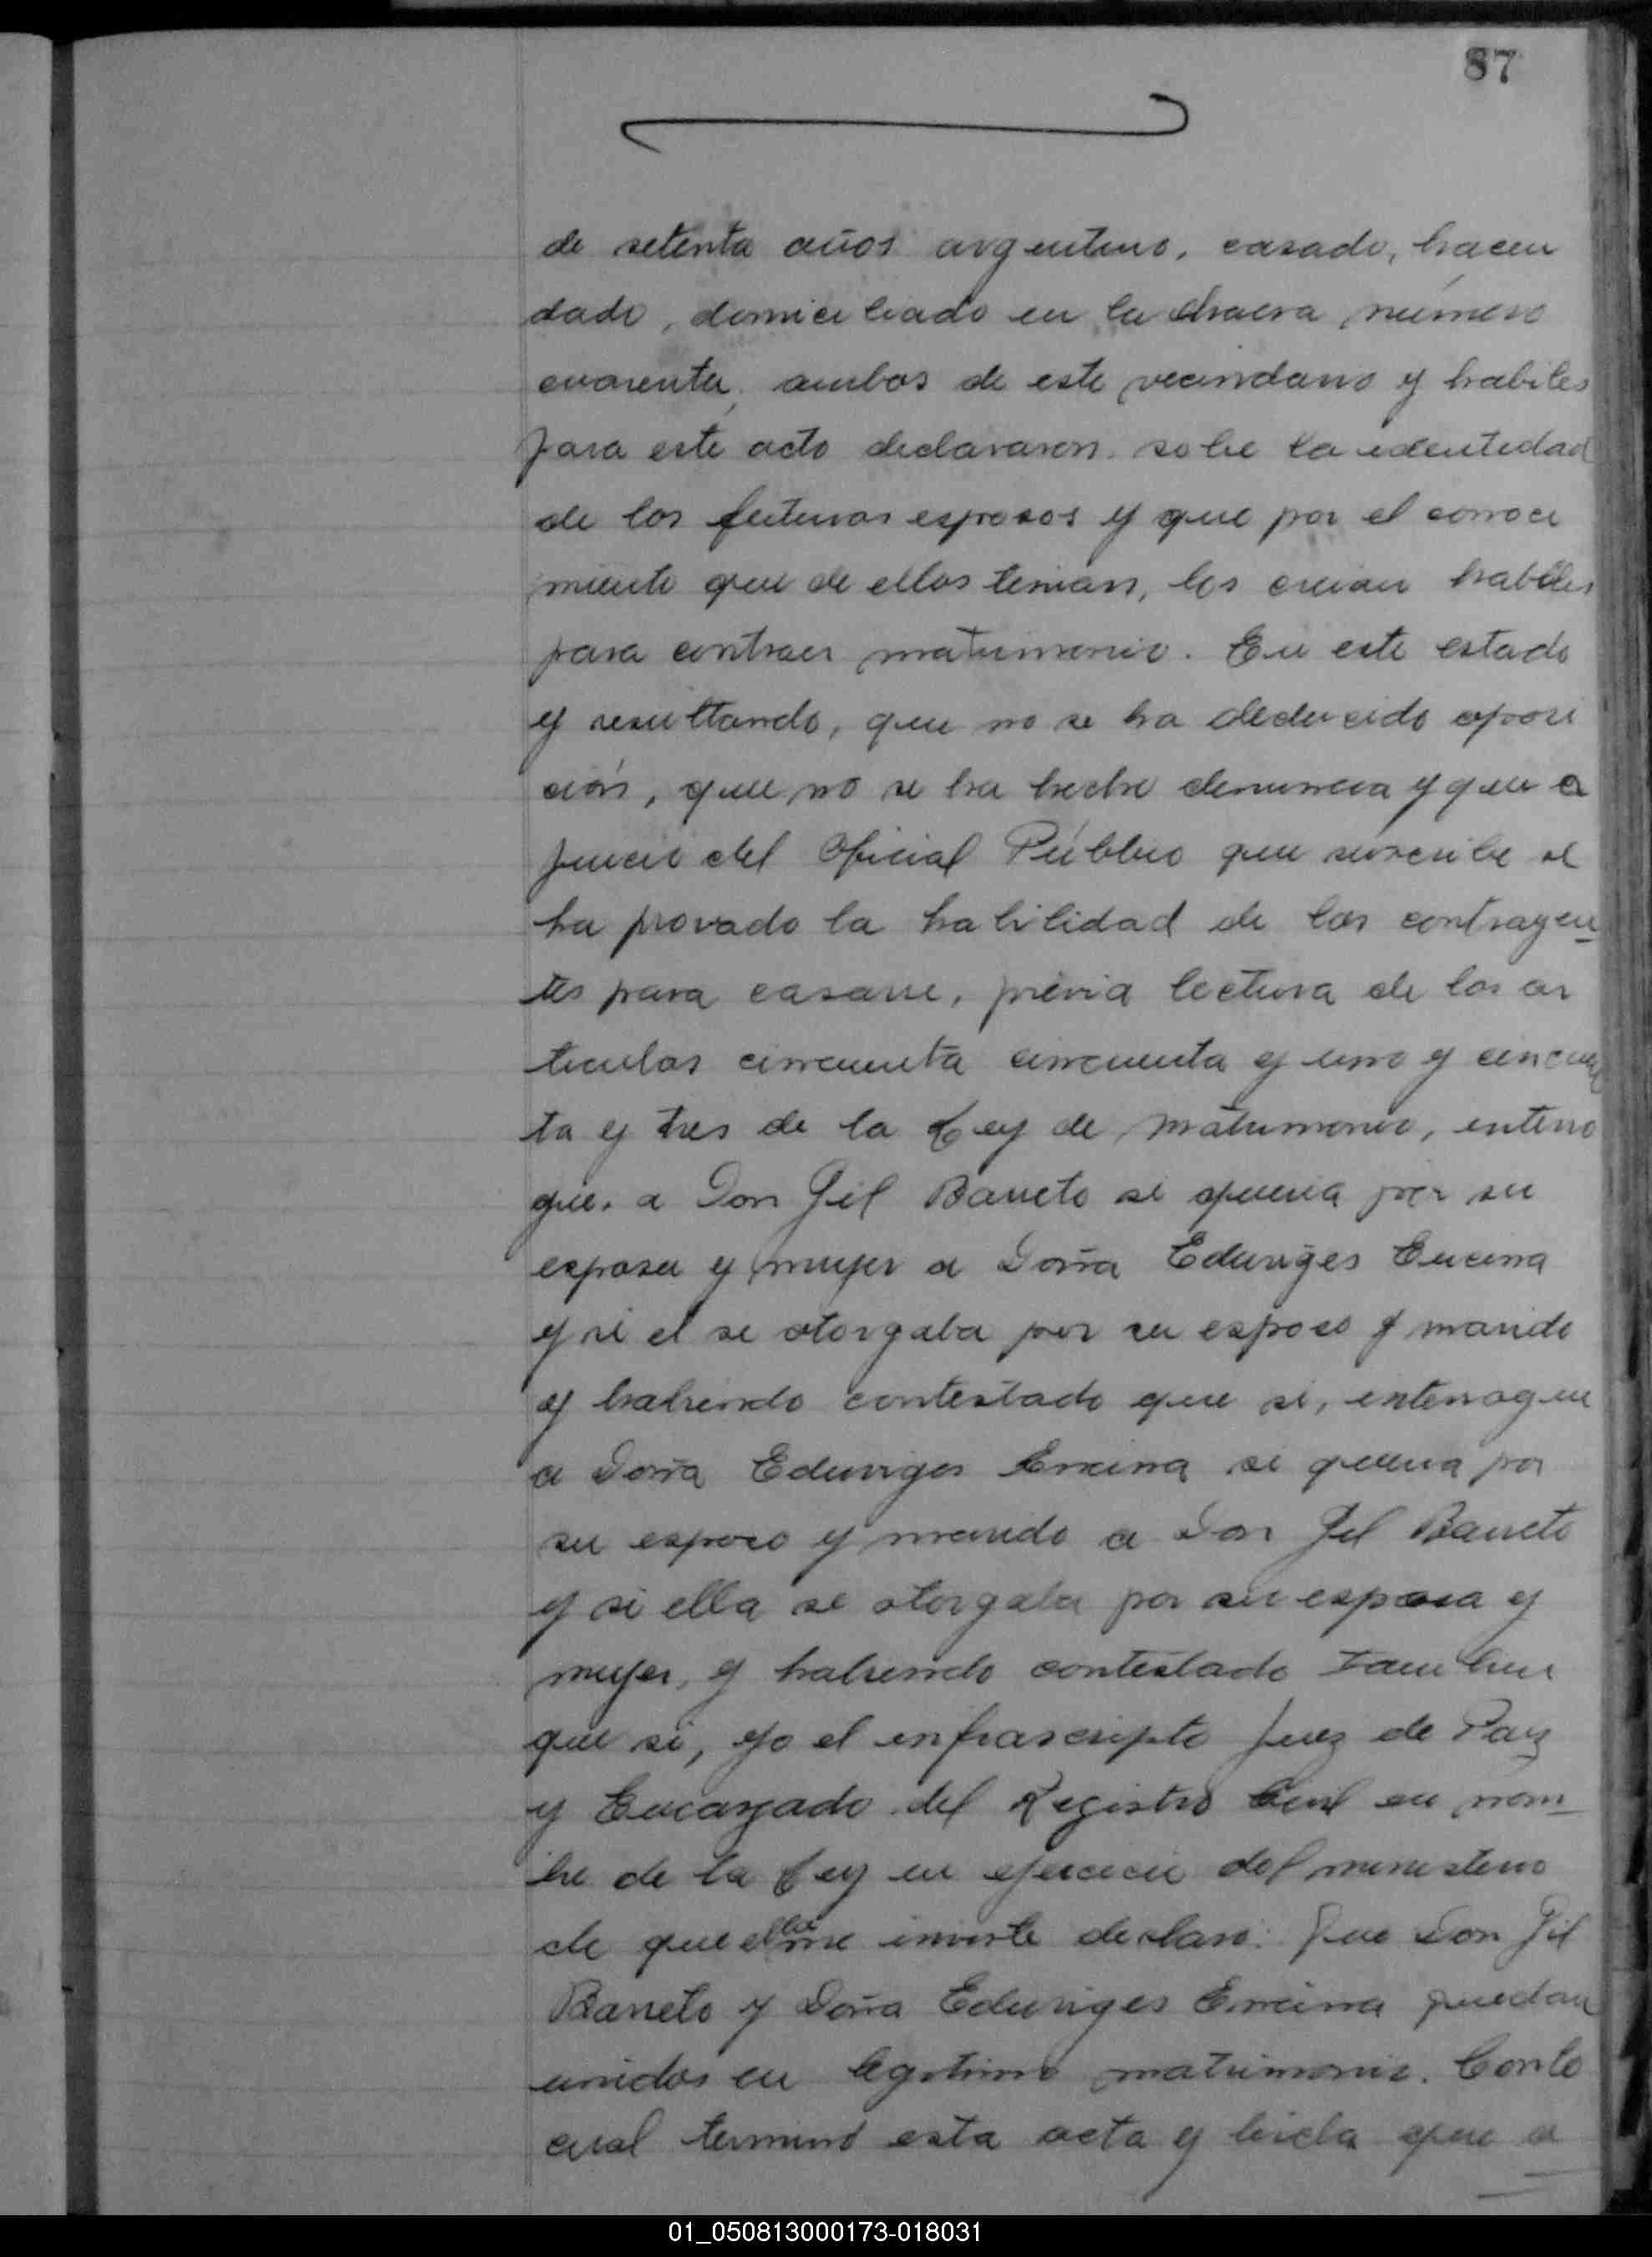 87
de setenta años argentino, casado, hacen
dado, domiciliado en la chacra número
cuarenta, ambos de este vecindario y habiles
para este acto declararon sobre la identidad
de los futuros esposos y que por el conoci
miento que de ellos tenian, los creian habiles
para contraer matrimonio. En este estado
y resultando, que no se ha deducido oposi
ción, que no se ha hecho denuncia y que a
juicio del Oficial Público que suscribe se
ha provado la habilidad de los contrayen_
tes para casarse, prévia lectura de los ar
ticulos cincuenta cincuenta y uno y cincuen
ta y tres de la Ley de Matrimonio, interro
gue. a Don Gil Barreto si queria por su
esposa y mujer a Doña Eduviges Encina
y si el se otorgaba por su esposo y marido
y habiendo contestado que si, interrogue
a Doña Eduviges Encina si queria por
su esposo y marido a Don Gil Barreto
y si ella se otorgaba por su esposa y
mujer, y habiendo contestado tambien
que si, yo el infrascripto Juez de Paz
y Encargado del Registro Civil en nom_
bre de la Ley en ejercicio del ministerio
de que ella me inviste declaro: Que Don Gil
Barreto y Doña Eduviges Encina quedan
unidos en legitimo matrimonio. Con lo
cual terminó esta acta y leida que a
01_050813000173-018031